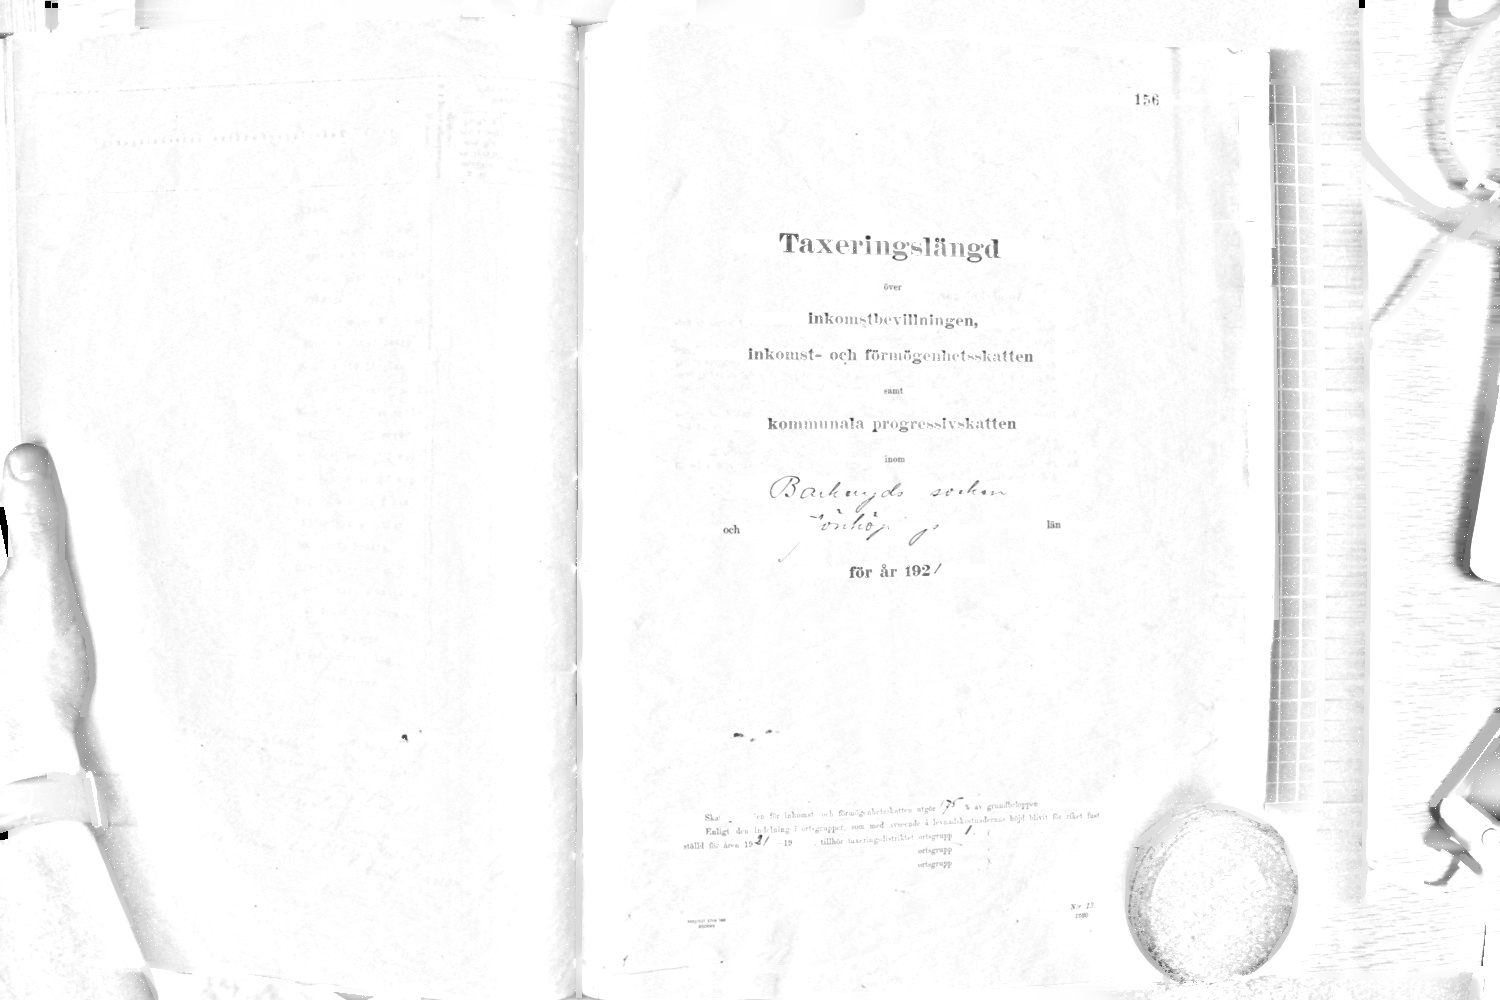 156
Taxeringslängd
över
inkomstbevillningen,
inkomst- och förmögenhetsskatten
samt
kommunala progressivskatten
inom
Barkeryds socken
och Jönköpings län
för år 1921
för inkomst- och förmögenhetsskatten utgör 175 % av grundbeloppen
Enligt den indelning i ortsgrupper, som med avseende å levnadskostnadernas höjd blivit för riket fast
ställd för åren 1921 —19 , tillhör taxeringsdistriktet ortsgrupp 1.
ortsgrupp
ortsgrupp
N:r 17
1920